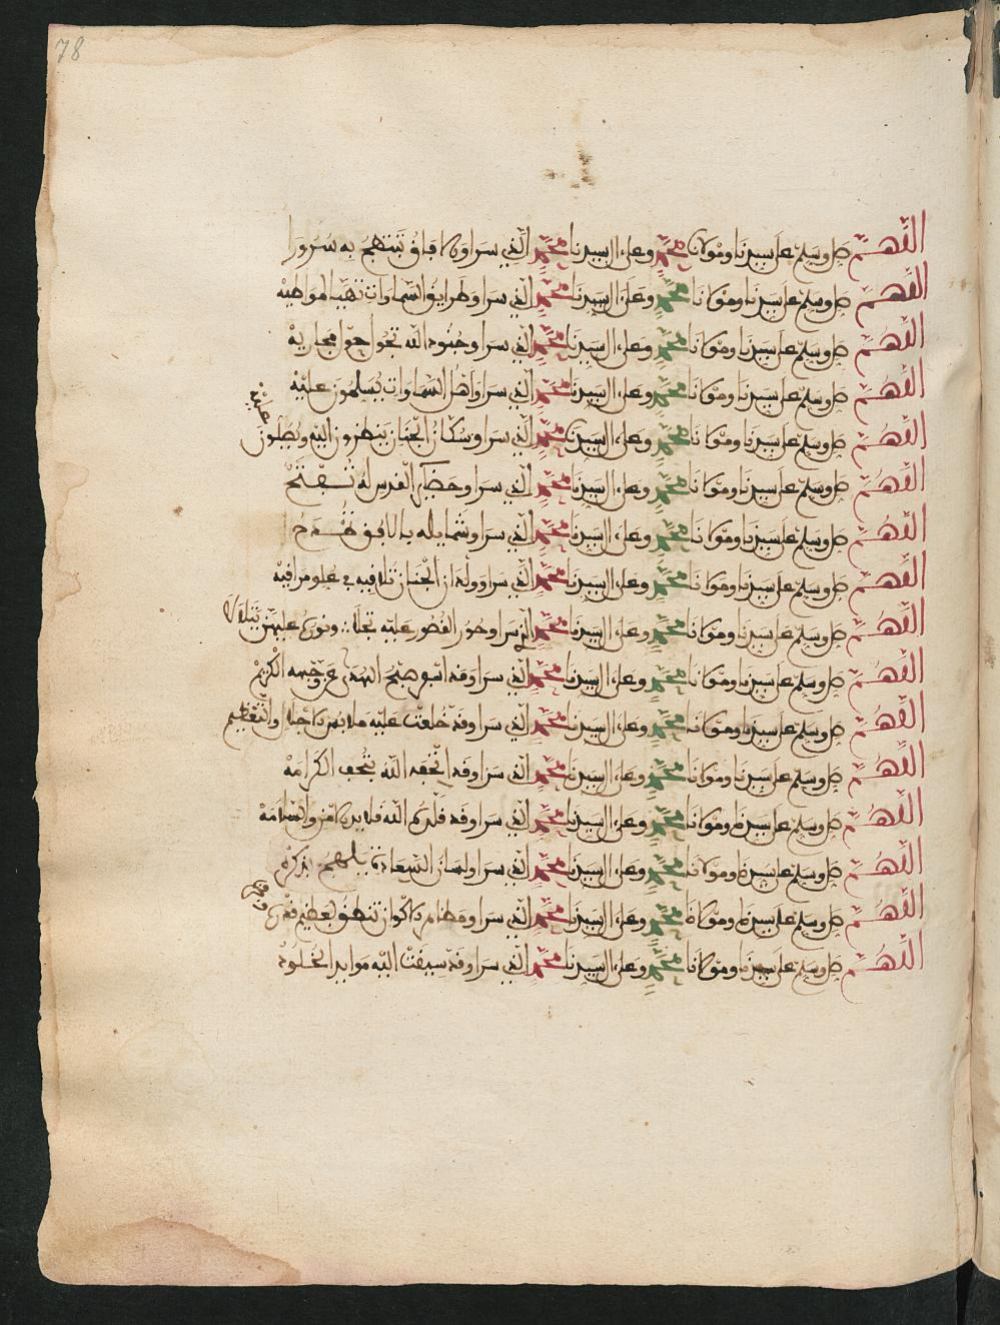 78
اللهم صل وسلم على سيدنا ومولانا محمد وعلى ال سيدنا محمد الذي سرا والافاق تبتهج به سرورا
اللهم صل وسلم على سيدنا ومولانا محمد وعلى ال سيدنا محمد الذي سرا وطرايق السماوات تهيا لمواطيه
اللهم صل وسلم على سيدنا ومولانا محمد وعلى ال سيدنا محمد الذي سرا وجنود الله تجول حول مجاريه
اللهم صل وسلم على سيدنا ومولانا محمد وعلى ال سيدنا محمد الذي سرا واهل السماوات يسلمون عليه
اللهم صل وسلم على سيدنا ومولانا محمد وعلى ال سيدنا محمد الذي سرا وسكان الجنان ينظرون اليه ويصلون عليه
اللهم صل وسلم على سيدنا ومولانا محمد وعلى ال سيدنا محمد الذي سرا وحضاير القدس له تفتح
اللهم صل وسلم على سيدنا ومولانا محمد وعلى ال سيدنا محمد الذي سرا وشمايله بالافق
اللهم صل وسلم على سيدنا ومولانا محمد وعلى ال سيدنا محمد الذي سرا وولدان الجنان تلاقيه في علو مراقيه
اللهم صل وسلم على سيدنا ومولانا محمد وعلى ال سيدنا محمد الذي سرا وحور القصور عليه تجلا ونوره عليهن يتلالا
اللهم صل وسلم على سيدنا ومولانا محمد وعلى ال سيدنا محمد الذي سرا وقد اسفر صبح الهدى عن وجهه الكريم
اللهم صل وسلم على سيدنا ومولانا محمد وعلى ال سيدنا محمد الذي سرا وقد خلعت عليه ملابس الاجلال والتعظيم
اللهم صل وسلم على سيدنا ومولانا محمد وعلى ال سيدنا محمد الذي سرا وقد اتحفه الله بتحف الكرامه
اللهم صل وسلم على سيدنا ومولانا محمد وعلى ال سيدنا محمد الذي سرا وقد قلده الله قلايد الامن والسلامه
اللهم صل وسلم على سيدنا ومولانا محمد وعلى ال سيدنا محمد الذي سرا ولسان السعادة يلهج بذكره
اللهم صل وسلم على سيدنا ومولانا محمد وعلى ال سيدنا محمد الذي سرا الاكوان تنطق بعظيم قدره
اللهم صل وسلم على سيدنا ومولانا محمد وعلى ال سيدنا محمد الذي سرا وقد سيقت اليه موايد الخلود